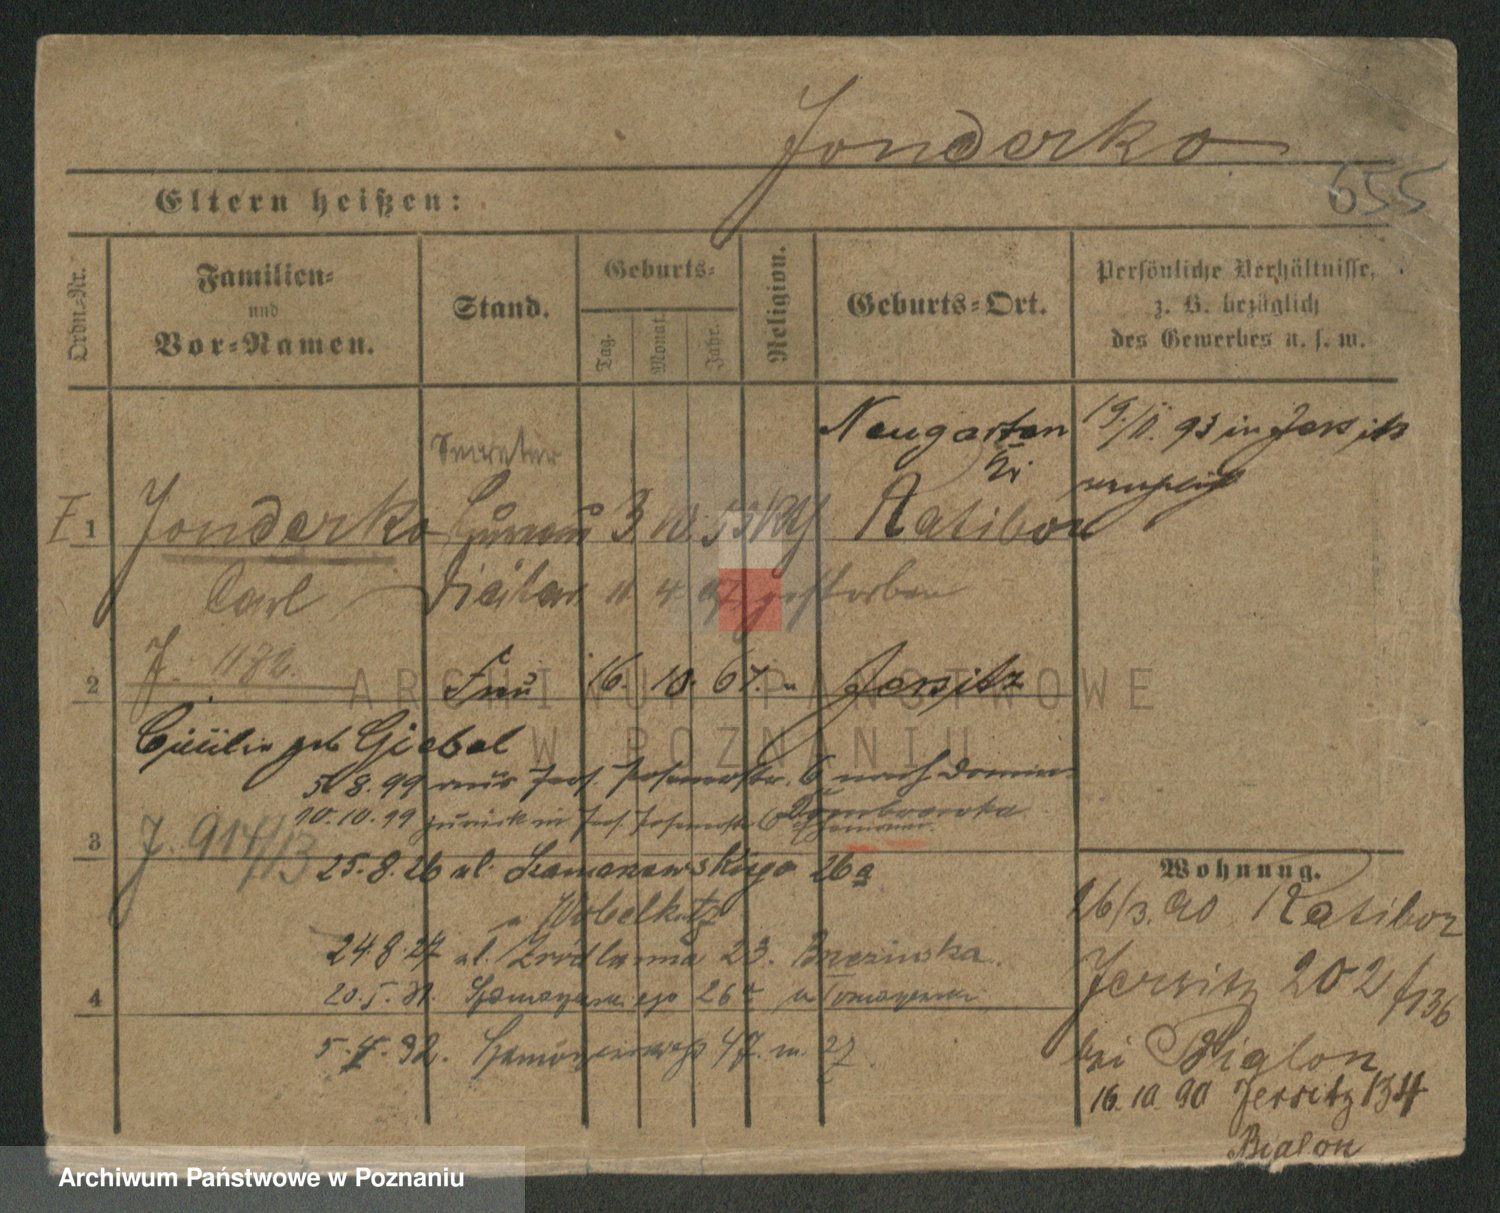 Jonderko
655
Eltern heißen:
Ordn.-Nr.
Familien-
und
Vor-Namen.
Stand.
Geburts-
Tag.
Monat.
Jahr.
Religion.
Geburts-Ort.
Persönliche Verhältnisse,
z. B. bezüglich
des Gewerbes u. s. w.
Neugarten
bei
Ratibor
19/II. 93 in Jersitz
Secretär
I 1 Jonderko Bureau 3. 10.
Carl Diätar 11 4 97 gestorben
J. 1182.
2 Frau 16. 10. 67. " Jersitz
Cäcilie geb Giebel
5/8. 99 aus Jers. 6 nach
10.10.99 zurück in Jers. 6 Dombrowska
J. 914/13
3
25.8.26 ul. Szamarzewskiego 26a
24.8.27 ul. Źródlana 23. Brezinska.
4 20.5.31. 26a
5.4.32. 47. m. 27.
Wohnung.
26/3. 90 Ratibor
Jersitz 202 /136
bei Bialon
16.10.90 Jersitz 134
Bialon
ARCHIWUM PAŃSTWOWE
W POZNANIU
Archiwum Państwowe w Poznaniu